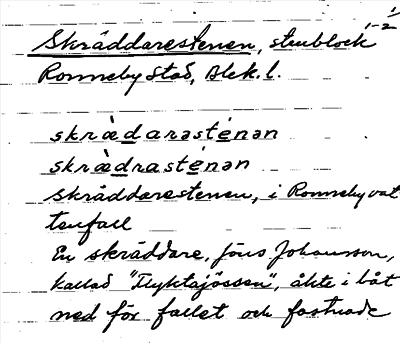 1-2 1/
Skräddarestenen, stenblock
Ronneby stad, Blek. l.
skræ̀darasténan
skræ̀drasténan
Skräddarestenen, i Ronneby vat
tenfall
En skräddare, Jöns Johansson,
kallad "Flyktajössen", åkte i båt
ned för fallet och fastnade